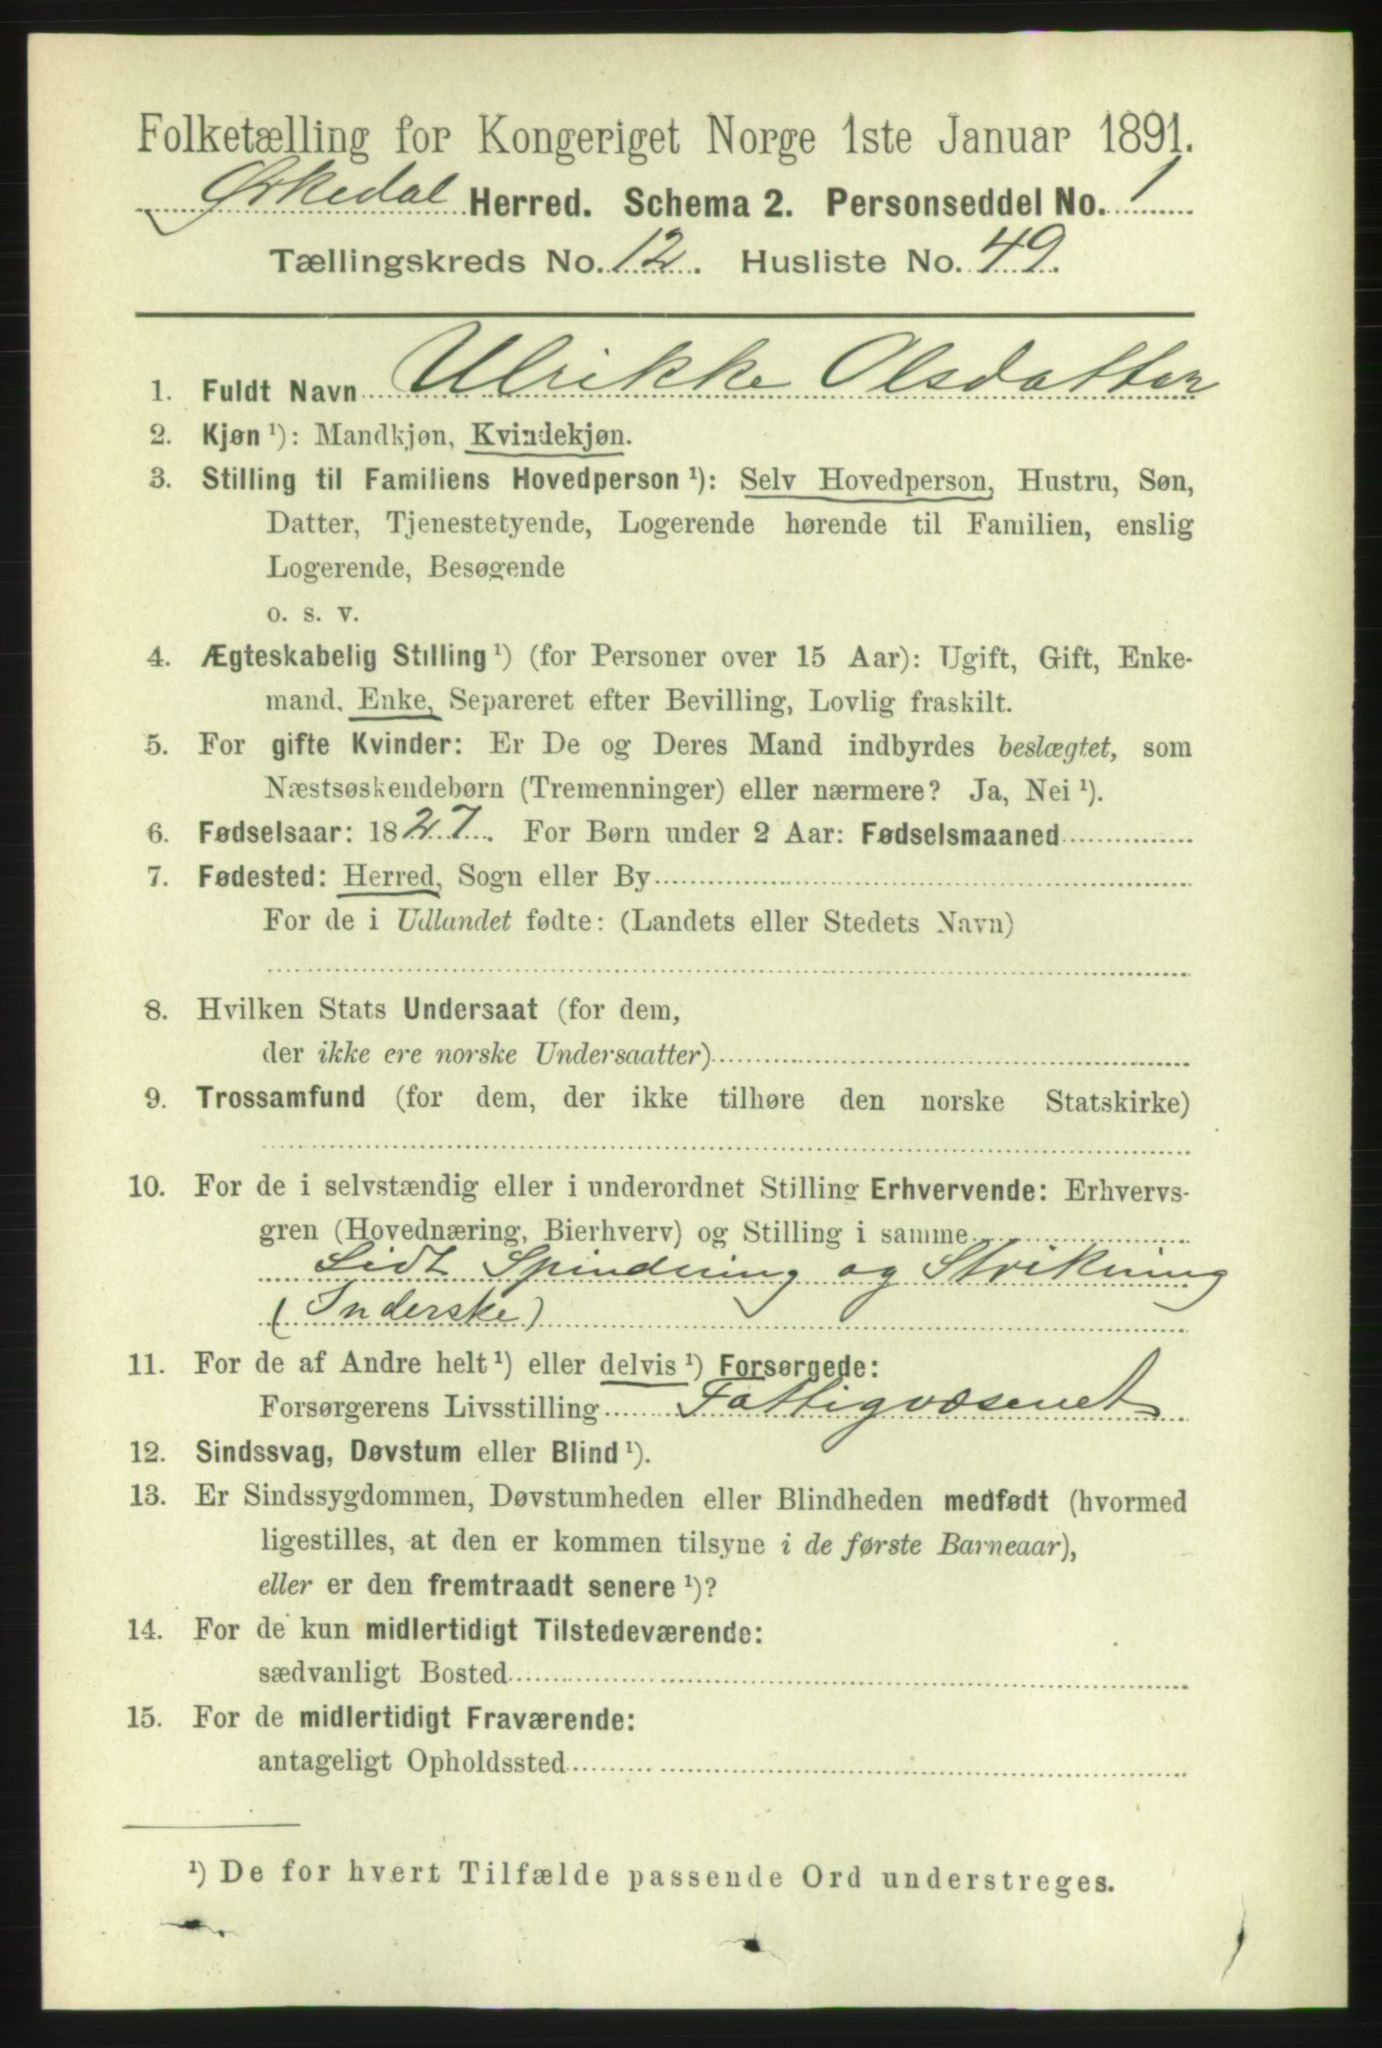 Folketælling for Kongeriget Norge 1ste Januar 1891.
Ørkedal Herred. Schema 2. Personseddel No. 1
Tællingskreds No. 12. Husliste No. 49.
1. Fuldt Navn Ulrikke Olsdatter
2. Kjøn ¹): Mandkjøn, Kvindekjøn.
3. Stilling til Familiens Hovedperson ¹): Selv Hovedperson, Hustru, Søn,
Datter, Tjenestetyende, Logerende hørende til Familien, enslig
Logerende, Besøgende
o. s. v.
4. Ægteskabelig Stilling ¹) (for Personer over 15 Aar): Ugift, Gift, Enke-
mand, Enke, Separeret efter Bevilling, Lovlig fraskilt.
5. For gifte Kvinder: Er De og Deres Mand indbyrdes beslægtet, som
Næstsøskendebørn (Tremenninger) eller nærmere? Ja, Nei ¹).
6. Fødselsaar: 1827. For Børn under 2 Aar: Fødselsmaaned
7. Fødested: Herred, Sogn eller By
For de i Udlandet fødte: (Landets eller Stedets Navn)
8. Hvilken Stats Undersaat (for dem,
der ikke ere norske Undersaatter)
9. Trossamfund (for dem, der ikke tilhøre den norske Statskirke)
10. For de i selvstændig eller i underordnet Stilling Erhvervende: Erhvervs-
gren (Hovednæring, Bierhverv) og Stilling i samme
Lidt Spindning og Strikning
(Inderske)
11. For de af Andre helt ¹) eller delvis ¹) Forsørgede:
Forsørgerens Livsstilling Fattigvæsenet
12. Sindssvag, Døvstum eller Blind ¹).
13. Er Sindssygdommen, Døvstumheden eller Blindheden medfødt (hvormed
ligestilles, at den er kommen tilsyne i de første Barneaar),
eller er den fremtraadt senere ¹)?
14. For de kun midlertidigt Tilstedeværende:
sædvanligt Bosted
15. For de midlertidigt Fraværende:
antageligt Opholdssted
¹) De for hvert Tilfælde passende Ord understreges.